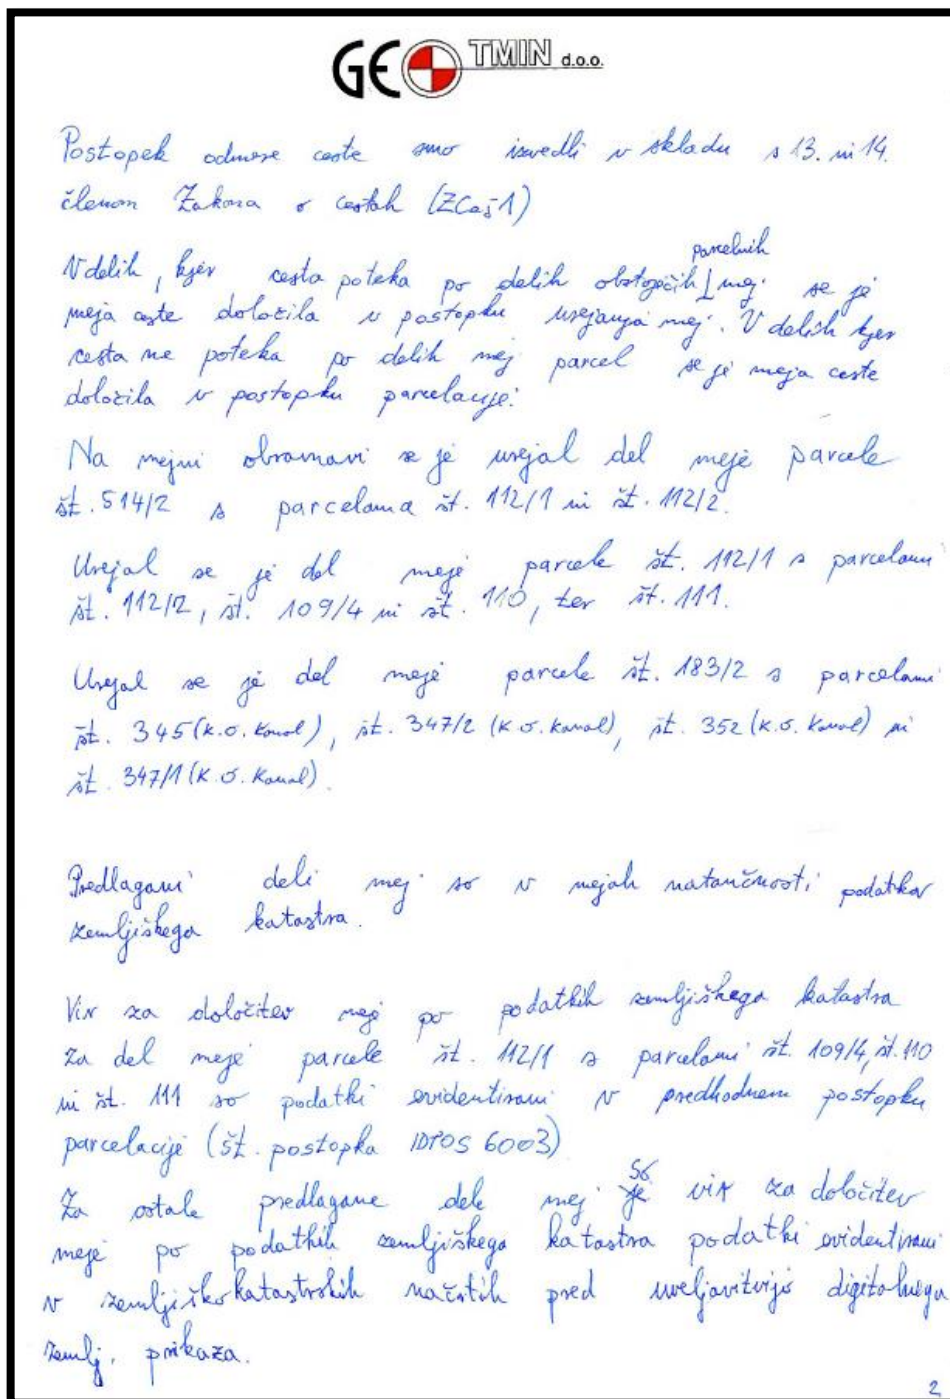 GEO TMIN d.o.o.
Postopek odmere ceste smo izvedli v skladu s 13. in 14.
členom Zakona o cestah (ZCes1)
parcelnih
V delih, kjer cesta poteka po delih obstoječih mej se je
meja ceste določila v postopku urejanja mej. V delih kjer
cesta ne poteka po delih mej parcel se je meja ceste
določila v postopku parcelacije.
Na mejni obravnavi se je urejal del meje parcele
št. 514/2 s parcelama št. 112/1 in št. 112/2.
Urejal se je del meje parcele št. 112/1 s parcelami
št. 112/2, št. 109/4 in št. 110, ter št. 111.
Urejal se je del meje parcele št. 183/2 s parcelami
št. 345 (k.o. Kanal), št. 347/2 (k.o. Kanal), št. 352 (k.o. Kanal) in
št. 347/1 (k.o. Kanal).
Predlagani deli mej so v mejah natančnosti podatkov
zemljiškega katastra.
Vir za določitev meje po podatkih zemljiškega katastra
za del meje parcele št. 112/1 s parcelami št. 109/4, št. 110
in št. 111 so podatki evidentirani v predhodnem postopku
parcelacije (št. postopka IDPOS 6003)
so
Za ostale predlagane dele mej je vir za določitev
meje po podatkih zemljiškega katastra podatki evidentirani
v zemljiškokatastrskih načrtih pred uveljavitvijo digitalnega
zemlj. prikaza.
2